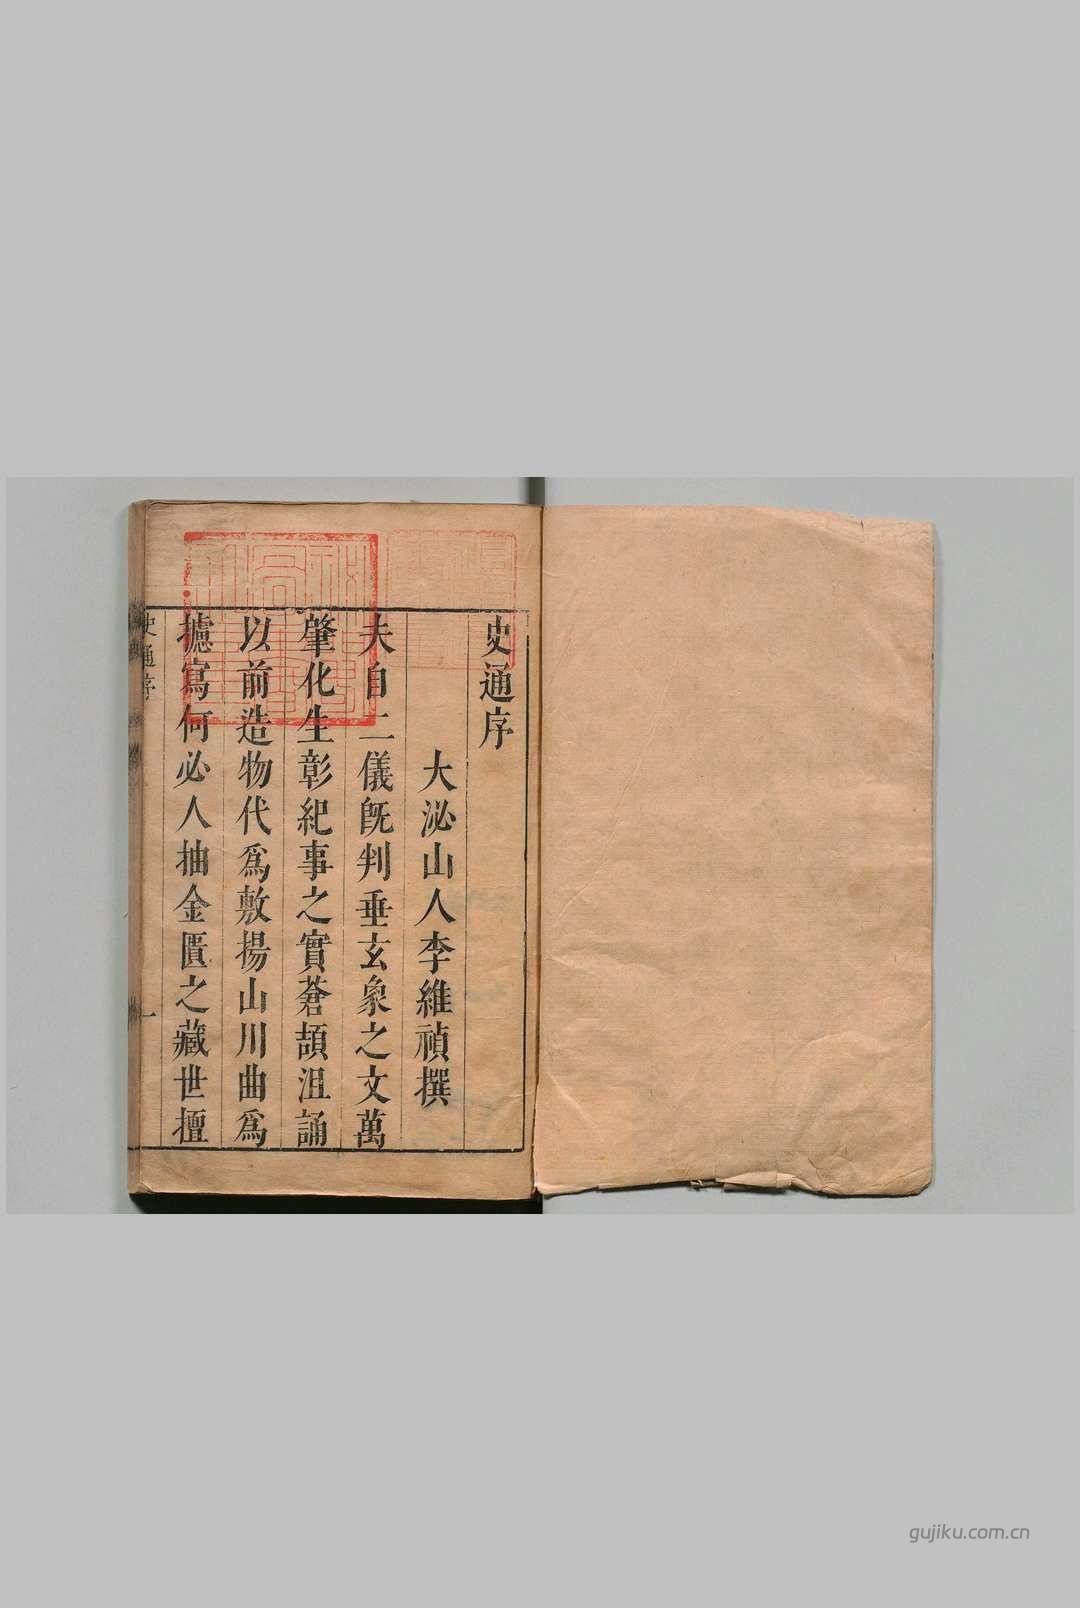 史通序
大泌山人李維禎撰
夫自二儀旣判垂玄象之文萬
肇化生彰紀事之實蒼頡沮誦
以前造物代爲敷揚山川曲爲
攄寫何必人抽金匱之藏世擅
史通序
一
gujiku.com.cn